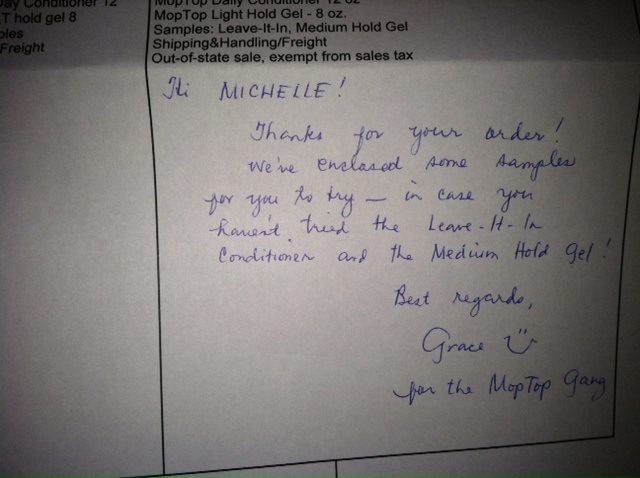 Day Conditioner 12
MopTop Daily Conditioner 12 oz
T hold gel 8
MopTop Light Hold Gel - 8 oz.
ples
Samples: Leave-It-In, Medium Hold Gel
Freight
Shipping&Handling/Freight
Out-of-state sale, exempt from sales tax
Hi MICHELLE!
Thanks for your order!
We've enclosed some samples
for you to try — in case you
haven't tried the Leave-It-In
Conditioner and the Medium Hold Gel!
Best regards,
Grace
for the MopTop Gang